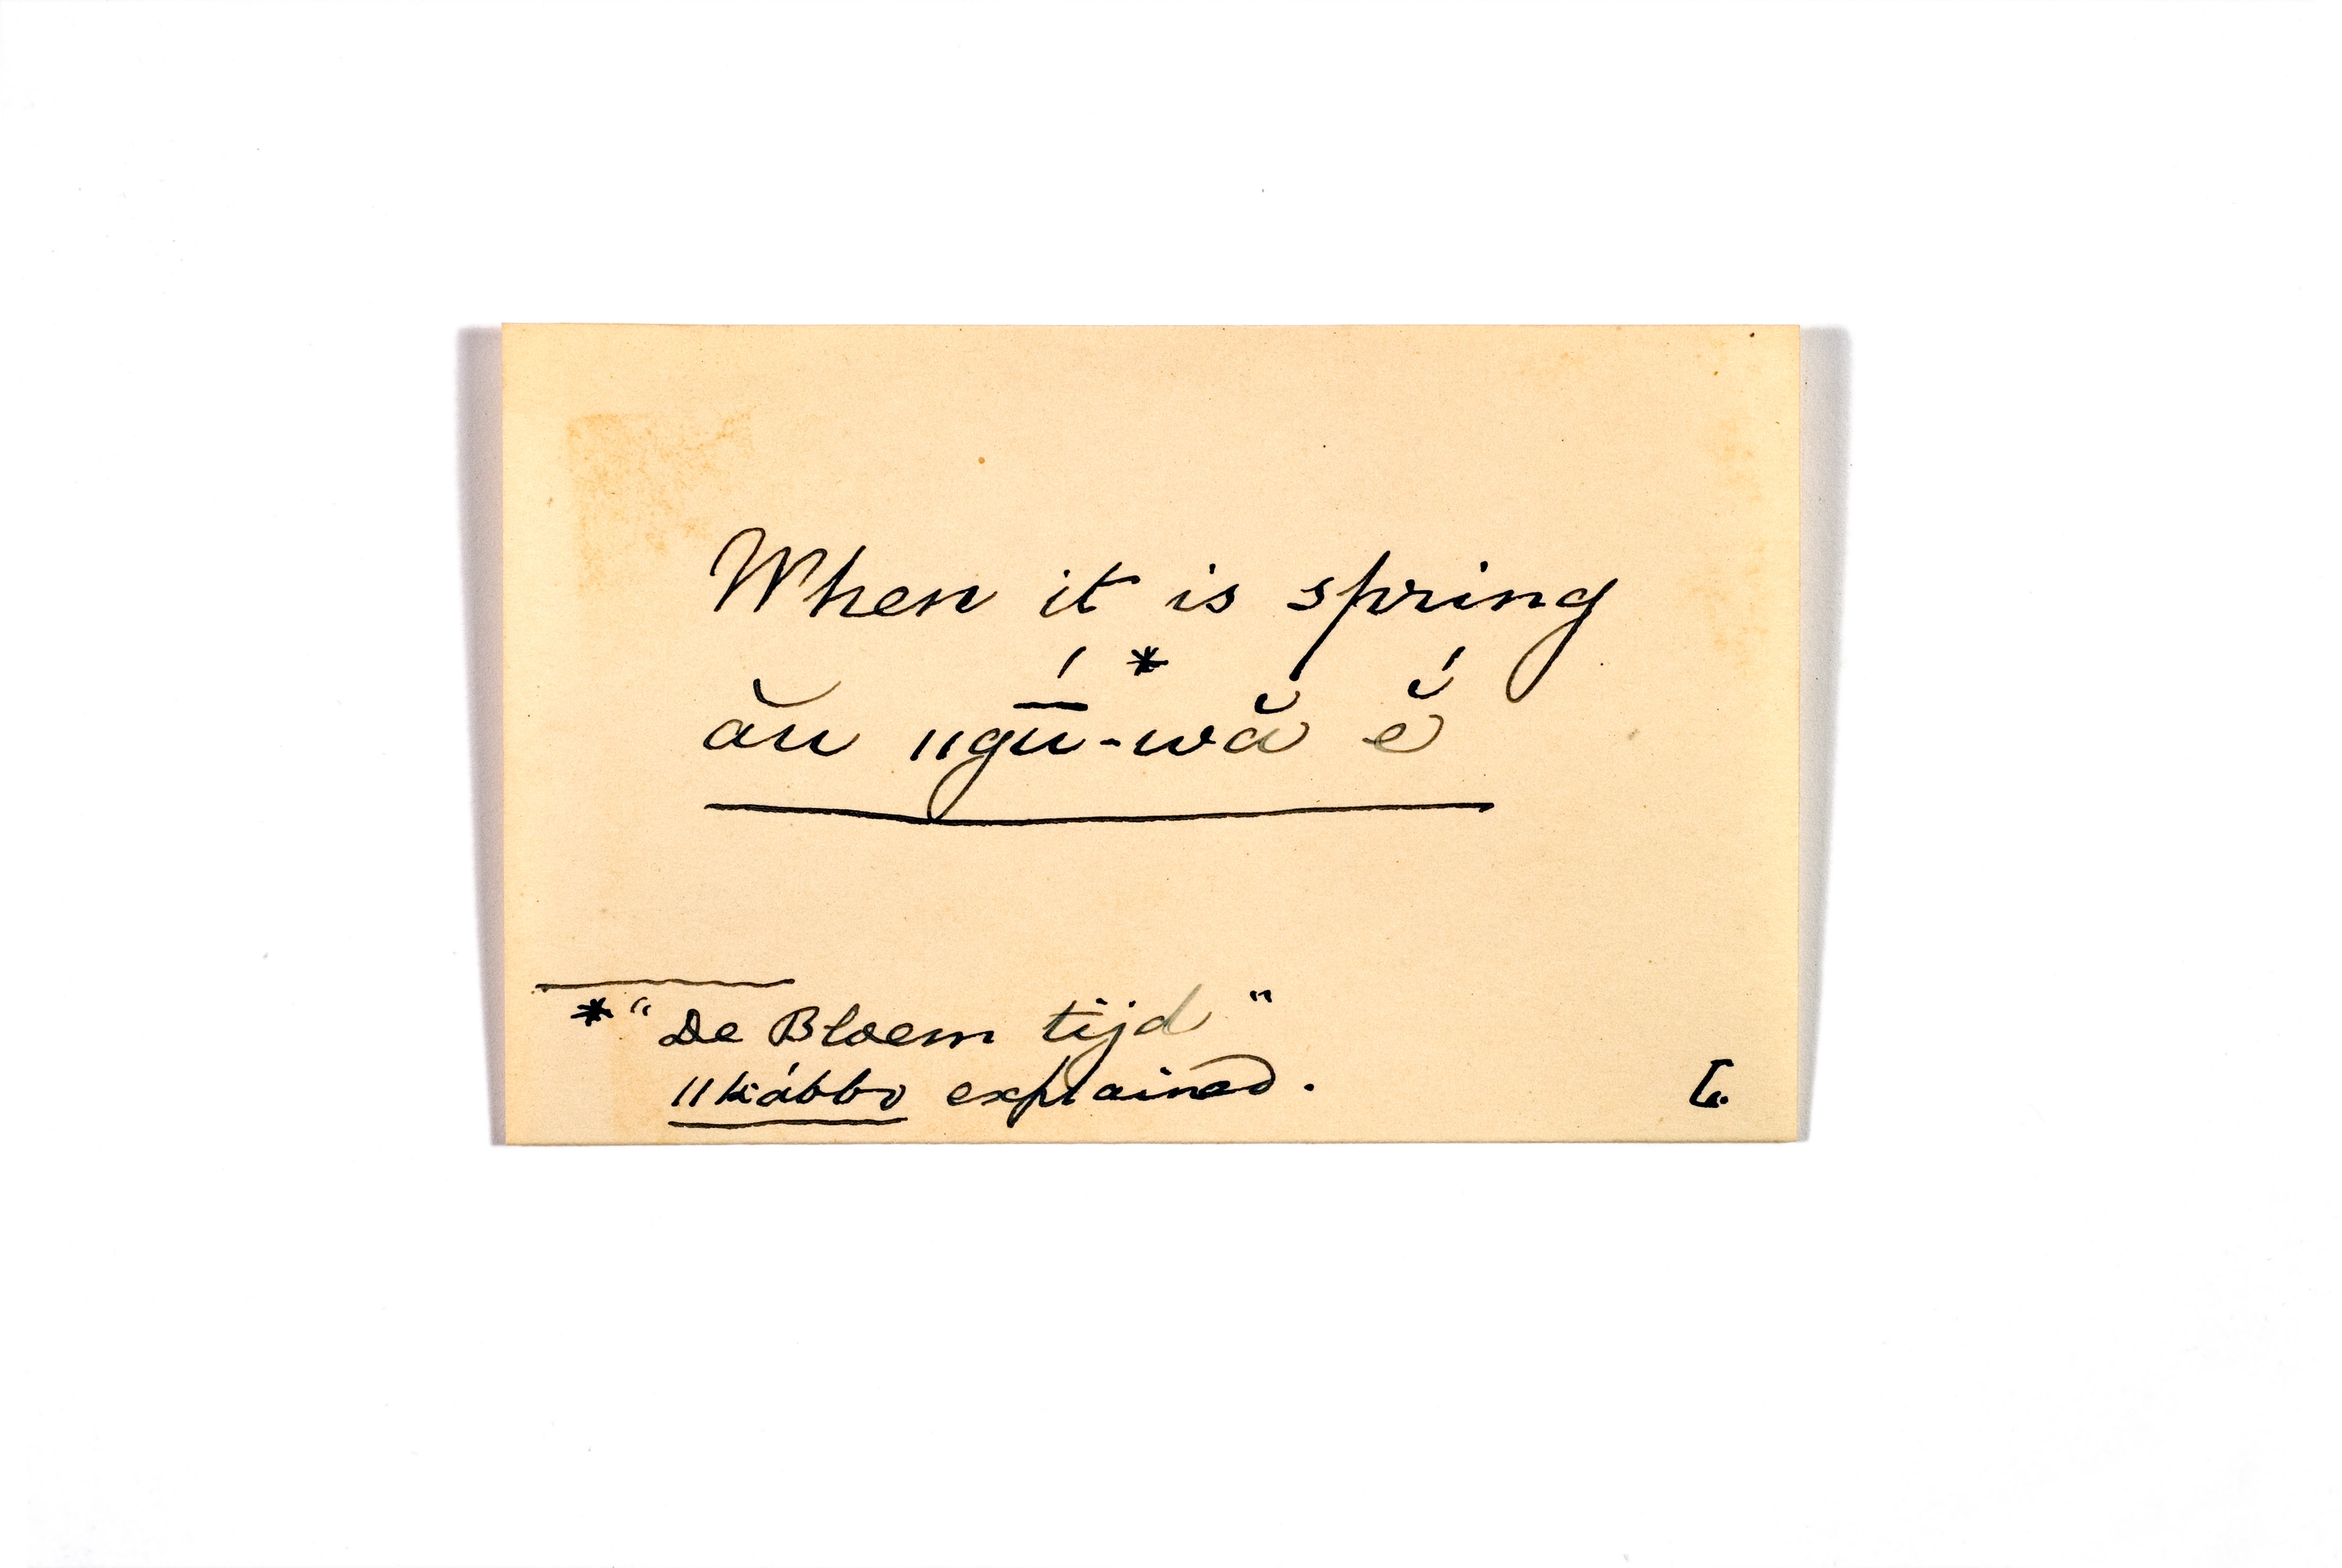 When it is spring
ău ǁgū́-wă * ĕ́
* "De Bloem tijd"
ǁkábbo explained.
L.